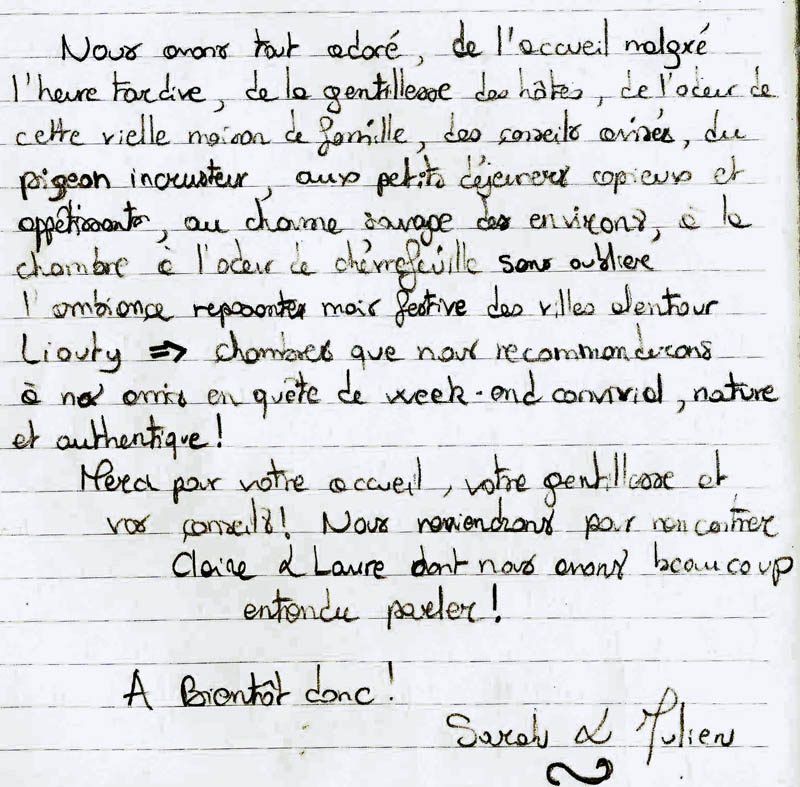 Nous avons tout adoré, de l'accueil malgré
l'heure tardive, de la gentillesse des hôtes, de l'odeur de
cette vielle maison de famille, des conseils avisés, du
pigeon incrusteur, aux petits déjeuners copieux et
appétissants, au charme sauvage des environs, à la
chambre à l'odeur de chèvrefeuille sans oublier
l'ambiance reposante mais festive des villes alentour
Liouty => chambres que nous recommanderons
à nos amis en quête de week-end convivial, nature
et authentique !
Merci pour votre accueil, votre gentillesse et
vos conseils ! Nous reviendrons pour rencontrer
Claire & Laure dont nous avons beaucoup
entendu parler !
A Bientôt donc !
Sarah & Julien